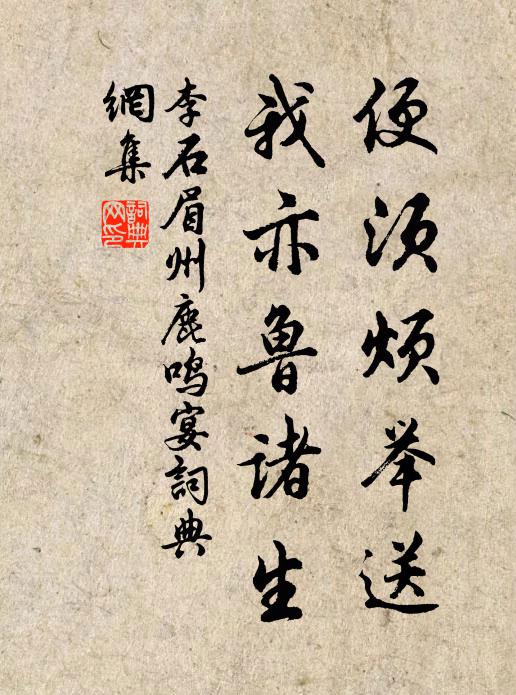 便须烦举送
我亦鲁诸生
李石眉州鹿鳴宴詞典
網集
詞典網印